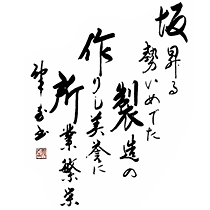 坂昇る
勢いめでた
製造の
作りし美誉に
所業繁栄